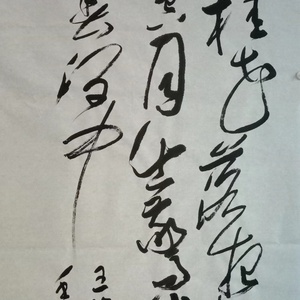 桂花落夜
空月出驚
春澗中
王